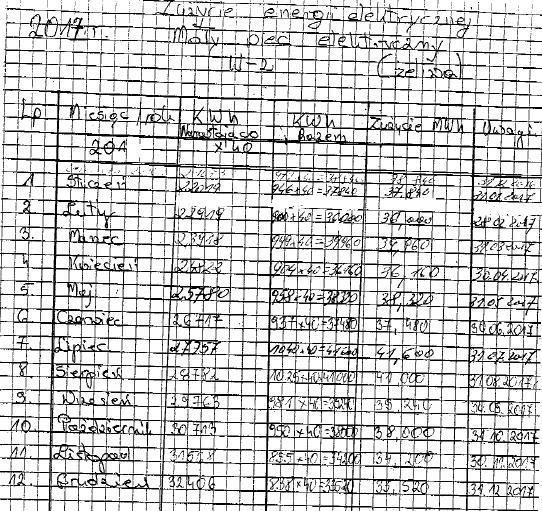 Zużycie energii elektrycznej
2017r. Mały piec elektryczny
W-2 (Żeliwa)
Lp Miesiąc/rok KWh KWh Zużycie MWh Uwagi
201 Narastająco Razem
x 40
1 Styczeń 946×40=37840 37,840 31.01.2017
2. Luty 900×40=36000 36,000 28.02.2017
3. Marzec 999×40=39960 39,960 31.03.2017
4. Kwiecień 24822 904×40=36160 36,160 30.04.2017
5. Maj 25780 958×40=38320 38,320 31.05.2017
6 Czerwiec 26717 937×40=37480 37,480 30.06.2017
7. Lipiec 27757 1040×40=41600 41,600 31.07.2017
8 Sierpień 28782 1025×40=41000 41,000 31.08.2017
9. Wrzesień 29763 981×40=39240 39,240 30.09.2017
10. Październik 30713 950×40=38000 38,000 31.10.2017
11. Listopad 31568 855×40=34200 34,200 30.11.2017
12. Grudzień 32406 838×40=33520 33,520 31.12.2017